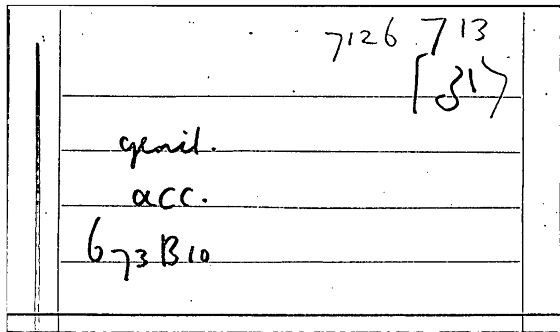 7126 713
[31]
genit.
acc.
673B10